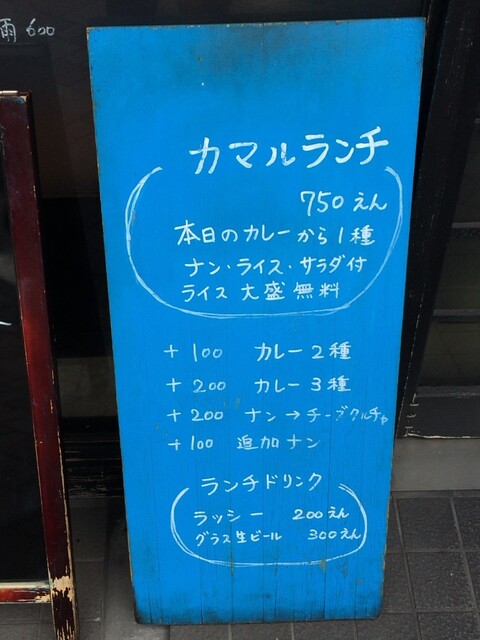 雨 600
カマルランチ
750えん
本日のカレーから1種
ナン・ライス・サラダ付
ライス 大盛無料
+100 カレー2種
+200 カレー3種
+200 ナン→チーズクルチャ
+100 追加ナン
ランチドリンク
ラッシー 200えん
グラス生ビール 300えん